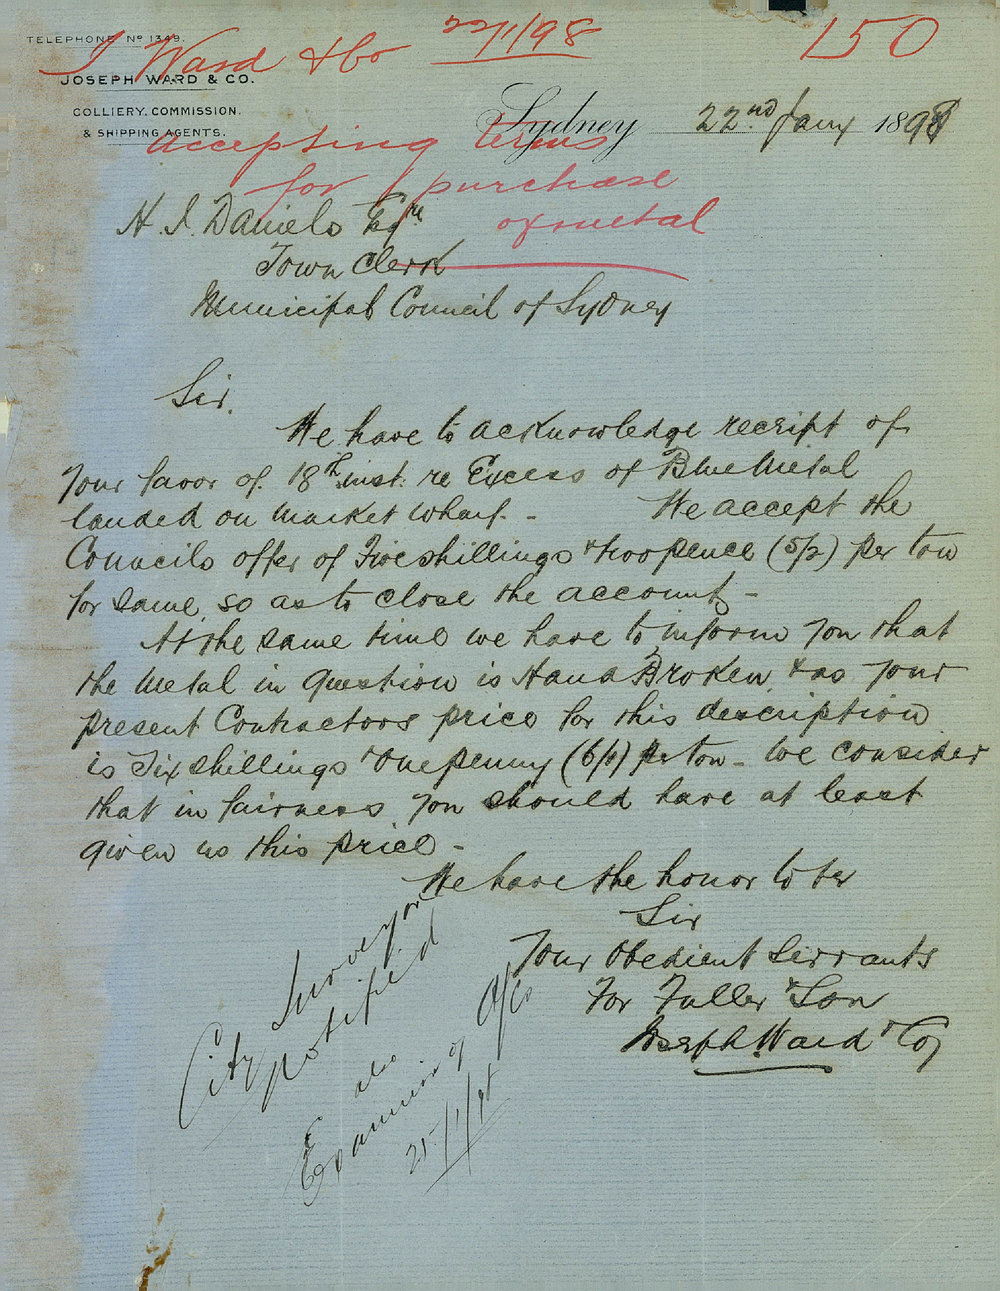 TELEPHONE No 1349.
J Ward & Co 22/1/98 150
JOSEPH WARD & CO.
COLLIERY, COMMISSION.
& SHIPPING AGENTS.
Sydney 22nd Jany 1898
accepting terms
for purchase
of metal
H. I. Daniels Esqre
Town Clerk
Municipal Council of Sydney
Sir.
We have to acknowledge receipt of
Your favor of 18th inst: re Excess of Blue Metal
landed on Market Wharf. - We accept the
Councils offer of Five shillings & twopence (5/2) per ton
for same, so as to close the account -
At the same time we have to inform you that
the Metal in question is Hand Broken, & as your
present Contractors price for this description
is Six shillings & one penny (6/1) per ton - we consider
that in fairness, you should have at least
given us this price -
We have the honor to be
Sir
Your Obedient Servants
For Fuller & Son
Joseph Ward & Coy
City Surveyor
notified
also
Examiner of A/cs
25/1/98